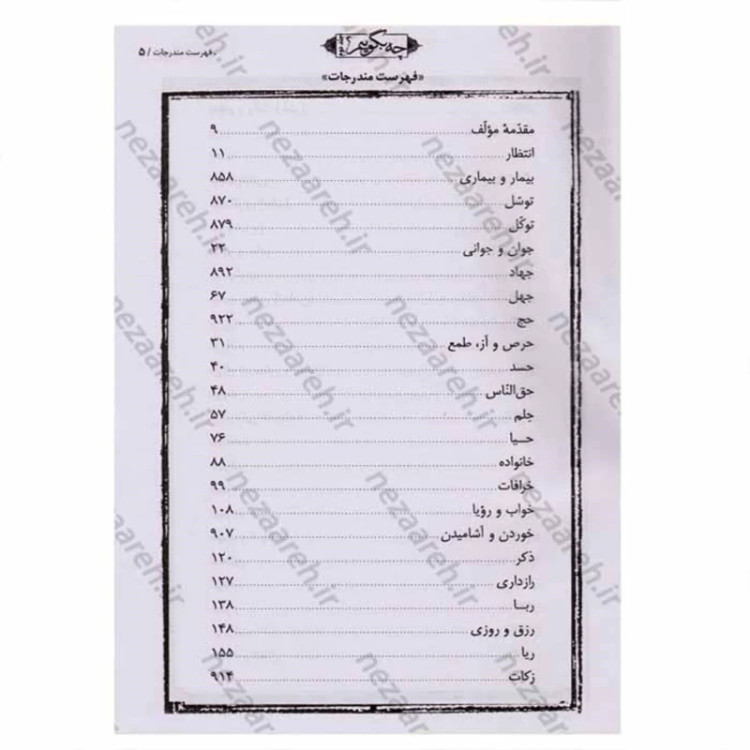 فهرست مندرجات / ۵
چه بگوییم؟
«فهرست مندرجات»
مقدّمهٔ مؤلّف ۹
انتظار ۱۱
بیمار و بیماری ۸۵۸
توسّل ۸۷۰
توکّل ۸۷۹
جوان و جوانی ۲۲
جهاد ۸۹۲
جهل ۶۷
حج ۹۲۲
حرص و آز، طمع ۳۱
حسد ۴۰
حق‌النّاس ۴۸
حِلم ۵۷
حـیا ۷۶
خانواده ۸۸
خرافات ۹۹
خواب و رؤیا ۱۰۸
خوردن و آشامیدن ۹۰۷
ذکر ۱۲۰
رازداری ۱۲۷
ربـا ۱۳۸
رزق و روزی ۱۴۸
ریا ۱۵۵
زکات ۹۱۴
nezaareh.ir